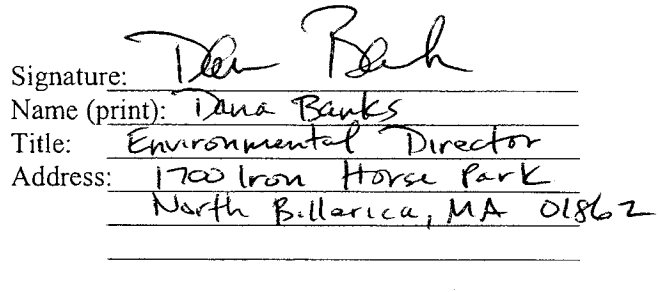 Signature: Dana Banks
Name (print): Dana Banks
Title: Environmental Director
Address: 1700 Iron Horse Park
North Billerica, MA 01862